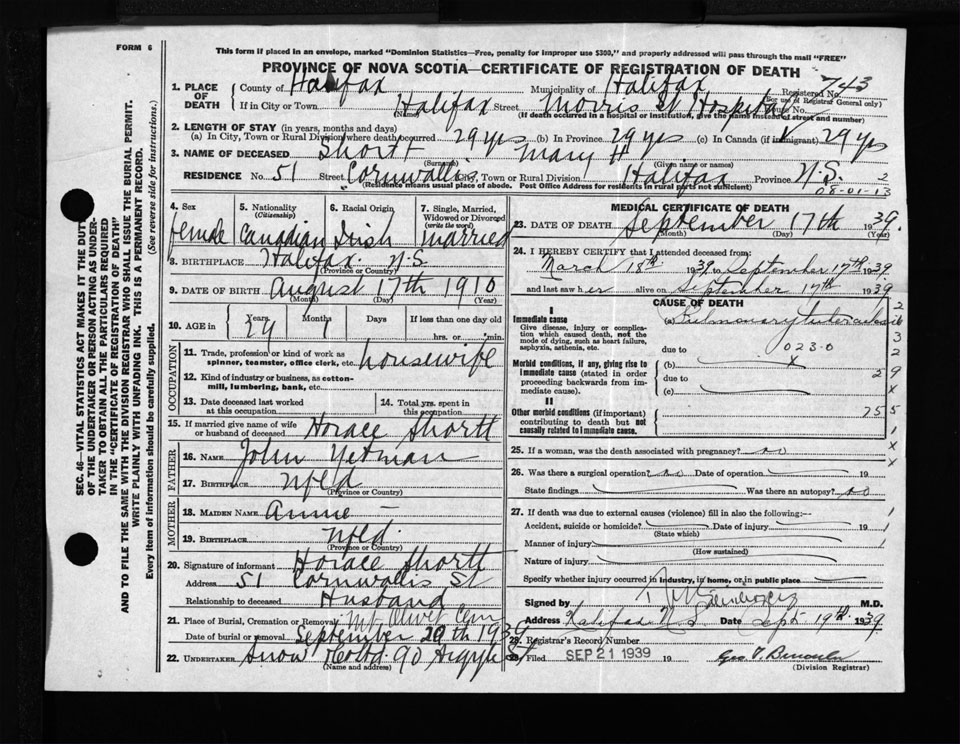 FORM 6
This form if placed in an envelope, marked "Dominion Statistics—Free, penalty for improper use $300," and properly addressed will pass through the mail "FREE"
PROVINCE OF NOVA SCOTIA—CERTIFICATE OF REGISTRATION OF DEATH
SEC. 46—VITAL STATISTICS ACT MAKES IT THE DUTY
OF THE UNDERTAKER OR PERSON ACTING AS UNDER-
TAKER TO OBTAIN ALL THE PARTICULARS REQUIRED
IN THE "CERTIFICATE OF REGISTRATION OF DEATH"
AND TO FILE THE SAME WITH THE DIVISION REGISTRAR WHO SHALL ISSUE THE BURIAL PERMIT.
WRITE PLAINLY WITH UNFADING INK. THIS IS A PERMANENT RECORD.
Every item of information should be carefully supplied. (See reverse side for instructions.)
1. PLACE OF DEATH County of Halifax Municipality of Halifax Registered No. 743
(For use of Registrar General only)
If in City or Town Halifax Street Morris St Hospital House No.
(Name) (If death occurred in a hospital or institution, give its name instead of street and number)
2. LENGTH OF STAY (in years, months and days)
(a) In City, Town or Rural Division where death occurred 29 yrs (b) In Province 29 yrs (c) In Canada (if immigrant) 29 yrs
3. NAME OF DECEASED Shortt Mary H
(Surname) (Given name or names)
RESIDENCE No. 51 Street Cornwallis City, Town or Rural Division Halifax Province N.S. 2
(Residence means usual place of abode. Post Office Address for residents in rural parts not sufficient) 08-01-13
4. Sex female
5. Nationality (Citizenship) Canadian
6. Racial Origin Irish
7. Single, Married, Widowed or Divorced (write the word) married
8. BIRTHPLACE Halifax N.S.
(Province or Country)
9. DATE OF BIRTH August 17th 1910
(Month) (Day) (Year)
10. AGE in Years 29 Months 1 Days If less than one day old hrs. or min.
OCCUPATION
11. Trade, profession or kind of work as spinner, teamster, office clerk, etc. housewife
12. Kind of industry or business, as cotton-mill, lumbering, bank, etc.
13. Date deceased last worked at this occupation
14. Total yrs. spent in this occupation
15. If married give name of wife or husband of deceased Horace Shortt
FATHER
16. NAME John Yetman
17. BIRTHPLACE Nfld
(Province or Country)
MOTHER
18. MAIDEN NAME Annie —
19. BIRTHPLACE Nfld.
(Province or Country)
20. Signature of informant Horace Shortt
Address 51 Cornwallis St
Relationship to deceased Husband
21. Place of Burial, Cremation or Removal Mt Olivet Cem
Date of burial or removal September 20th 1939
22. UNDERTAKER Snow & Co Ltd 90 Argyle St
(Name and address)
MEDICAL CERTIFICATE OF DEATH
23. DATE OF DEATH September 17th 1939.
(Month) (Day) (Year)
24. I HEREBY CERTIFY that I attended deceased from:
March 18th 1939 to September 17th 1939
and last saw her alive on September 17th 1939
CAUSE OF DEATH
I
Immediate cause (a) Pulmonary tuberculosis
Give disease, injury or complication which caused death, not the mode of dying, such as heart failure, asphyxia, asthenia, etc.
due to 023-0
Morbid conditions, if any, giving rise to immediate cause (stated in order proceeding backwards from immediate cause).
(b) x
due to
(c)
II
Other morbid conditions (if important) contributing to death but not causally related to immediate cause.
25. If a woman, was the death associated with pregnancy? no
26. Was there a surgical operation? no Date of operation 19
State findings Was there an autopsy? no
27. If death was due to external causes (violence) fill in also the following:—
Accident, suicide or homicide? Date of injury 19
(State which)
Manner of injury
(How sustained)
Nature of injury
Specify whether injury occurred in industry, in home, or in public place
Signed by M.D.
Address Halifax N.S. Date Sept. 19th 1939.
28. Registrar's Record Number
29. Filed SEP 21 1939 19
(Division Registrar)